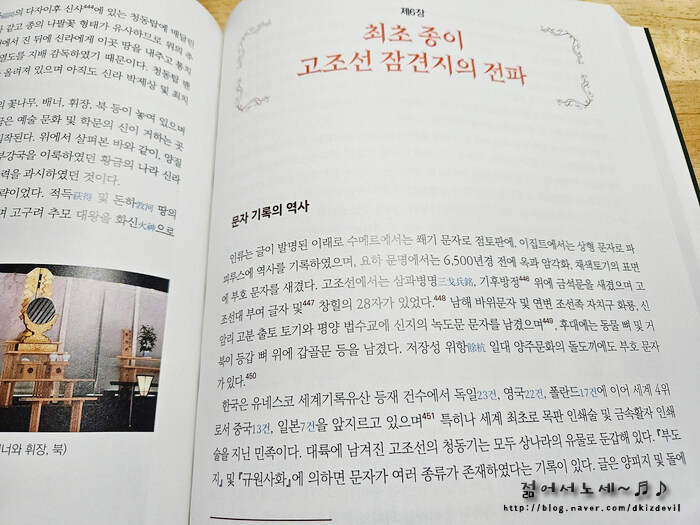 의 다자이후 신사444에 있는 청동탑에 배달린
같고 종의 나팔꽃 형태가 유사하므로 위의 추
에서 진 뒤에 신라에게 이곳 땅을 내주고 통치
열도를 지배 감독하였기 때문이다. 청동탑 맨
올려져 있으며 아직도 신라 박제상 및 최치
의 꽃나무, 배너, 휘장, 북 등이 놓여 있으며
은 예술 문화 및 학문의 신이 거하는 곳
작된다. 위에서 살펴본 바와 같이, 양질
부강국을 이룩하였던 황금의 나라 신라
력을 과시하였던 것이다.
략이었다. 적득荻得 및 돈하敦河 땅의
며 고구려 추모 대왕을 화신火神으로
너와 휘장, 북)
제6장
최초 종이
고조선 잠견지의 전파
문자 기록의 역사
인류는 글이 발명된 이래로 수메르에서는 쐐기 문자로 점토판에, 이집트에서는 상형 문자로 파
피루스에 역사를 기록하였으며, 요하 문명에서는 6,500년경 전에 옥과 암각화, 채색토기의 표면
에 부호 문자를 새겼다. 고조선에서는 삼과병명三戈兵銘, 기후방정446 위에 금석문을 새겼으며 고
조선대 부여 글자 및447 창힐의 28자가 있었다.448 남해 바위문자 및 연변 조선족 자치구 화룡, 신
암리 고분 출토 토기와 평양 법수교에 신지의 녹도문 문자를 남겼으며449, 후대에는 동물 뼈 및 거
북이 등갑 뼈 위에 갑골문 등을 남겼다. 저장성 위항餘杭 일대 양주문화의 돌도끼에도 부호 문자
가 있다.450
한국은 유네스코 세계기록유산 등재 건수에서 독일23건, 영국22건, 폴란드17건에 이어 세계 4위
로서 중국13건, 일본7건을 앞지르고 있으며451 특히나 세계 최초로 목판 인쇄술 및 금속활자 인쇄
술을 지닌 민족이다. 대륙에 남겨진 고조선의 청동기는 모두 상나라의 유물로 둔갑해 있다. 『부도
지』 및 『규원사화』에 의하면 문자가 여러 종류가 존재하였다는 기록이 있다. 글은 양피지 및 돌에
젊어서노세~♬♪
http://blog.naver.com/dkizdevil